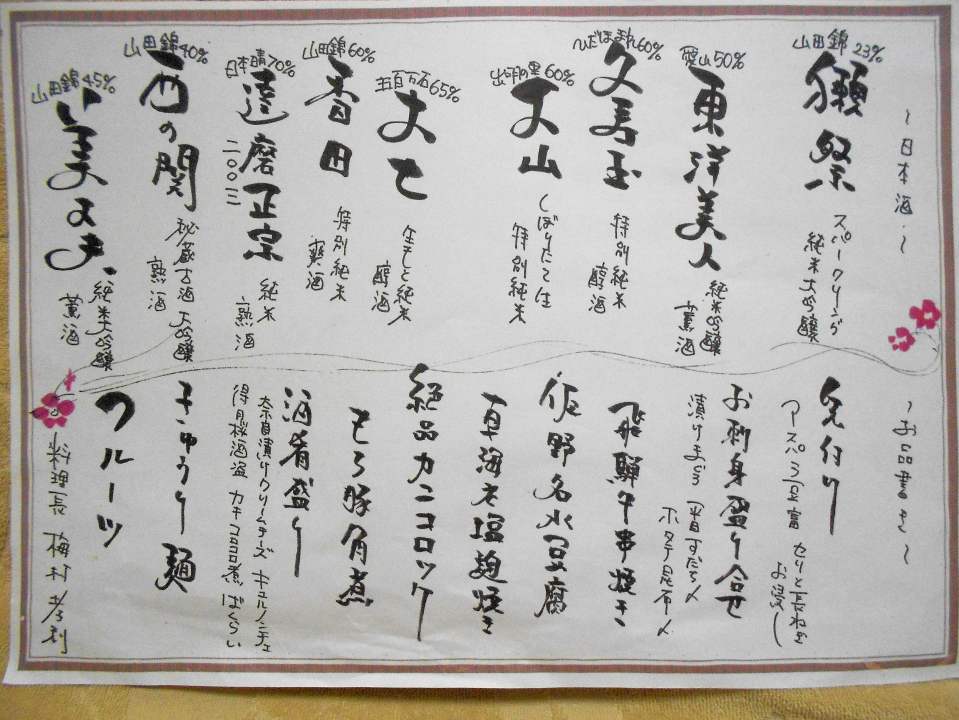 ～日本酒～
山田錦 23%
獺祭
スパークリング
純米大吟醸
愛山50%
東洋美人
純米吟醸
薫酒
ひだほまれ60%
久寿玉
特別純米
醇酒
出羽の里60%
大山
しぼりたて生
特別純米
五百万石65%
大七
生もと純米
醇酒
山田錦60%
香田
特別純米
爽酒
日本晴70%
達磨正宗
二〇〇三
純米
熟酒
山田錦40%
西の関
秘蔵古酒 大吟醸
熟酒
山田錦45%
純米大吟醸
薫酒
～お品書き～
先付け
アスパラ豆富 セリと長ねぎ
お浸し
お刺身盛り合せ
漬けまぐろ 平貝すだち〆
ホタテ昆布〆
飛騨牛串焼き
佐野名水豆腐
車海老塩麹焼き
絶品カニコロッケ
もろ豚角煮
酒肴盛り
奈良漬けクリームチーズ キュルノンチェ
得月桜酒盗 カキコロコロ煮 ばくらい
きゅうり麺
フルーツ
料理長 梅村